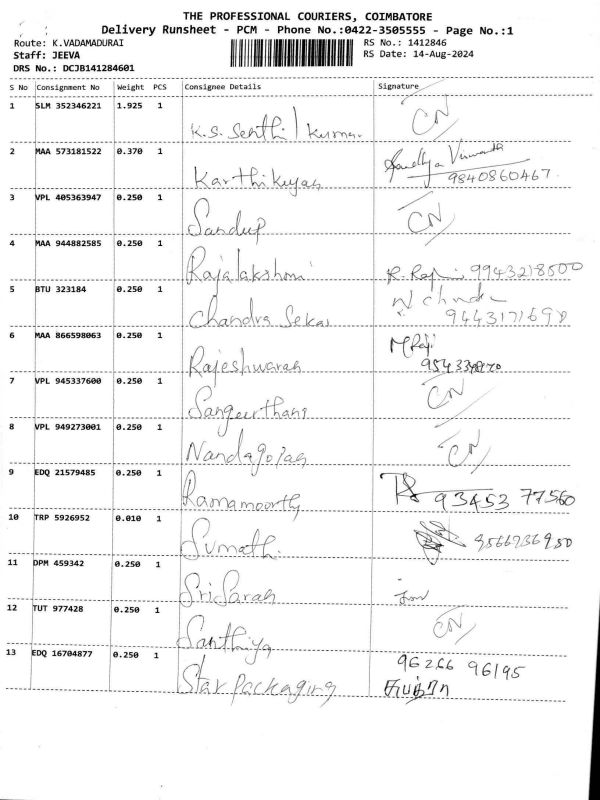 THE PROFESSIONAL COURIERS, COIMBATORE
Delivery Runsheet - PCM - Phone No.:0422-3505555 - Page No.:1
Route: K.VADAMADURAI RS No.: 1412846
Staff: JEEVA RS Date: 14-Aug-2024
DRS No.: DCJB141284601
S No Consignment No Weight PCS Consignee Details Signature
1 SLM 352346221 1.925 1 K.S. Senthil Kumar CN
2 MAA 573181522 0.370 1 Karthikeyan 9840860467
3 VPL 405363947 0.250 1 Sandup CN
4 MAA 944882585 0.250 1 Rajalakshmi 9943218500
5 BTU 323184 0.250 1 Chandra Sekar 9443171698
6 MAA 866598063 0.250 1 Rajeshwaran
7 VPL 945337600 0.250 1 Sangeerthani CN
8 VPL 949273001 0.250 1 Nandagopan CN
9 EDQ 21579485 0.250 1 Ramamoorthy 93453 77560
10 TRP 5926952 0.010 1 Sumathi 9566936950
11 DPM 459342 0.250 1 Sri Saran
12 TUT 977428 0.250 1 Santhiya CN
13 EDQ 16704877 0.250 1 Star Packaging 96266 96195